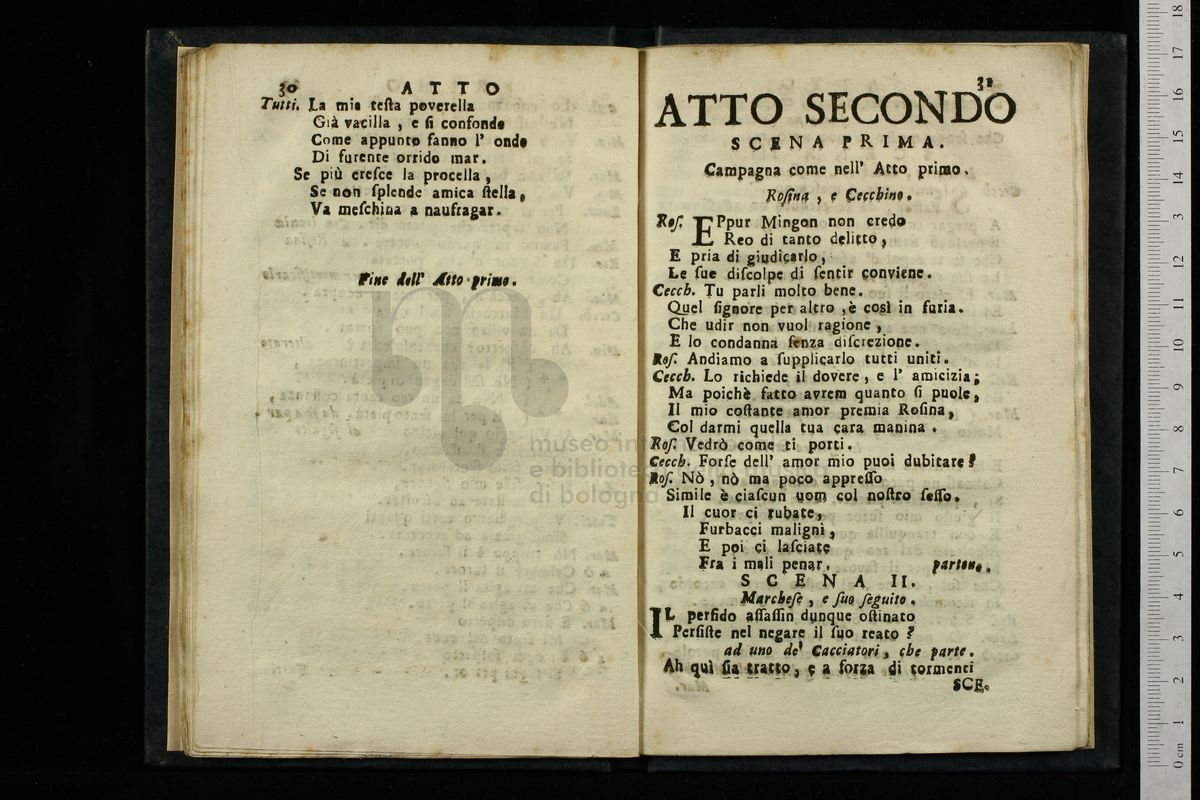 30 ATTO
Tutti. La mia teſta poverella
Già vacilla, e ſi confonde
Come appunto fanno l' onde
Di furente orrido mar.
Se più creſce la procella,
Se non ſplende amica ſtella,
Va meſchina a naufragar.
Fine dell' Atto primo.
31
ATTO SECONDO
SCENA PRIMA.
Campagna come nell' Atto primo.
Roſina, e Cecchino.
Roſ. EPpur Mingon non credo
Reo di tanto delitto,
E pria di giudicarlo,
Le ſue diſcolpe di ſentir conviene.
Cecch. Tu parli molto bene.
Quel ſignore per altro, è così in furia.
Che udir non vuol ragione,
E lo condanna ſenza diſcrezione.
Roſ. Andiamo a ſupplicarlo tutti uniti.
Cecch. Lo richiede il dovere, e l' amicizia;
Ma poichè fatto avrem quanto ſi puole,
Il mio coſtante amor premia Roſina,
Col darmi quella tua cara manina.
Roſ. Vedrò come ti porti.
Cecch. Forſe dell' amor mio puoi dubitare?
Roſ. Nò, nò ma poco appreſſo
Simile è ciaſcun uom col noſtro ſeſſo.
Il cuor ci rubate,
Furbacci maligni,
E poi ci laſciate
Fra i mali penar. partono.
SCENA II.
Marcheſe, e ſuo ſeguito.
IL perfido aſſaſſin dunque oſtinato
Perſiſte nel negare il ſuo reato?
ad uno de' Cacciatori, che parte.
Ah quì ſia tratto, e a forza di tormenti
SCE.
museo
e biblioteca
di bologna
0 cm 1 2 3 4 5 6 7 8 9 10 11 12 13 14 15 16 17 18